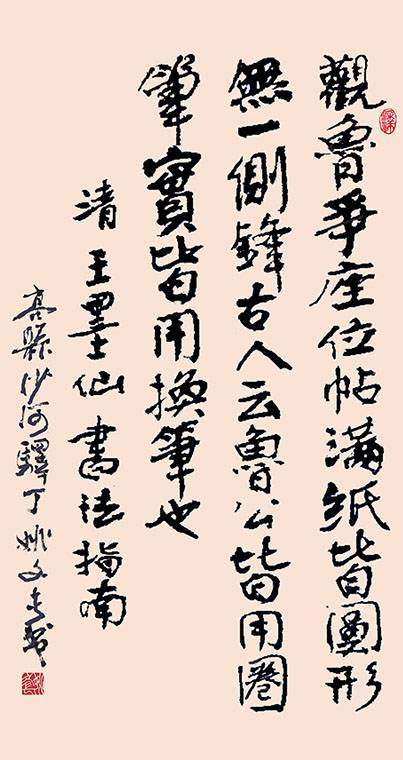 觀魯爭座位帖滿紙皆圓形
無一側鋒古人云魯公皆用圈
筆實皆用換筆也
清王墨仙書法指南
高縣沙河驛丁姚文